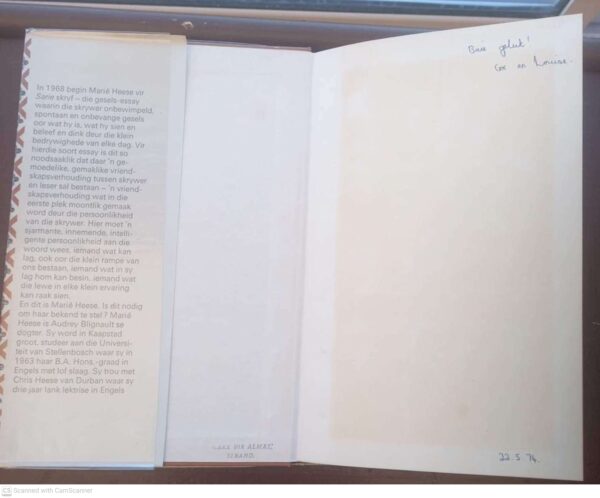 In 1968 begin Marié Heese vir
Sarie skryf – die gesels-essay
waarin die skrywer onbewimpeld,
spontaan en onbevange gesels
oor wat hy is, wat hy sien en
beleef en dink deur die klein
bedrywighede van elke dag. Vir
hierdie soort essay is dit so
noodsaaklik dat daar 'n ge-
moedelike, gemaklike vriend-
skapsverhouding tussen skrywer
en leser sal bestaan – 'n vriend-
skapsverhouding wat in die
eerste plek moontlik gemaak
word deur die persoonlikheid
van die skrywer. Hier moet 'n
sjarmante, innemende, intelli-
gente persoonlikheid aan die
woord wees, iemand wat kan
lag, ook oor die klein rampe van
ons bestaan, iemand wat in sy
lag hom kan besin, iemand wat
die lewe in elke klein ervaring
kan raak sien.
En dit is Marié Heese. Is dit nodig
om haar bekend te stel? Marié
Heese is Audrey Blignault se
dogter. Sy word in Kaapstad
groot, studeer aan die Universi-
teit van Stellenbosch waar sy in
1963 haar B.A. Hons.-graad in
Engels met lof slaag. Sy trou met
Chris Heese van Durban waar sy
drie jaar lank lektrise in Engels
VIR ALMAL,
STRAND.
Baie geluk!
en Louise.
22.5.74.
CS Scanned with CamScanner